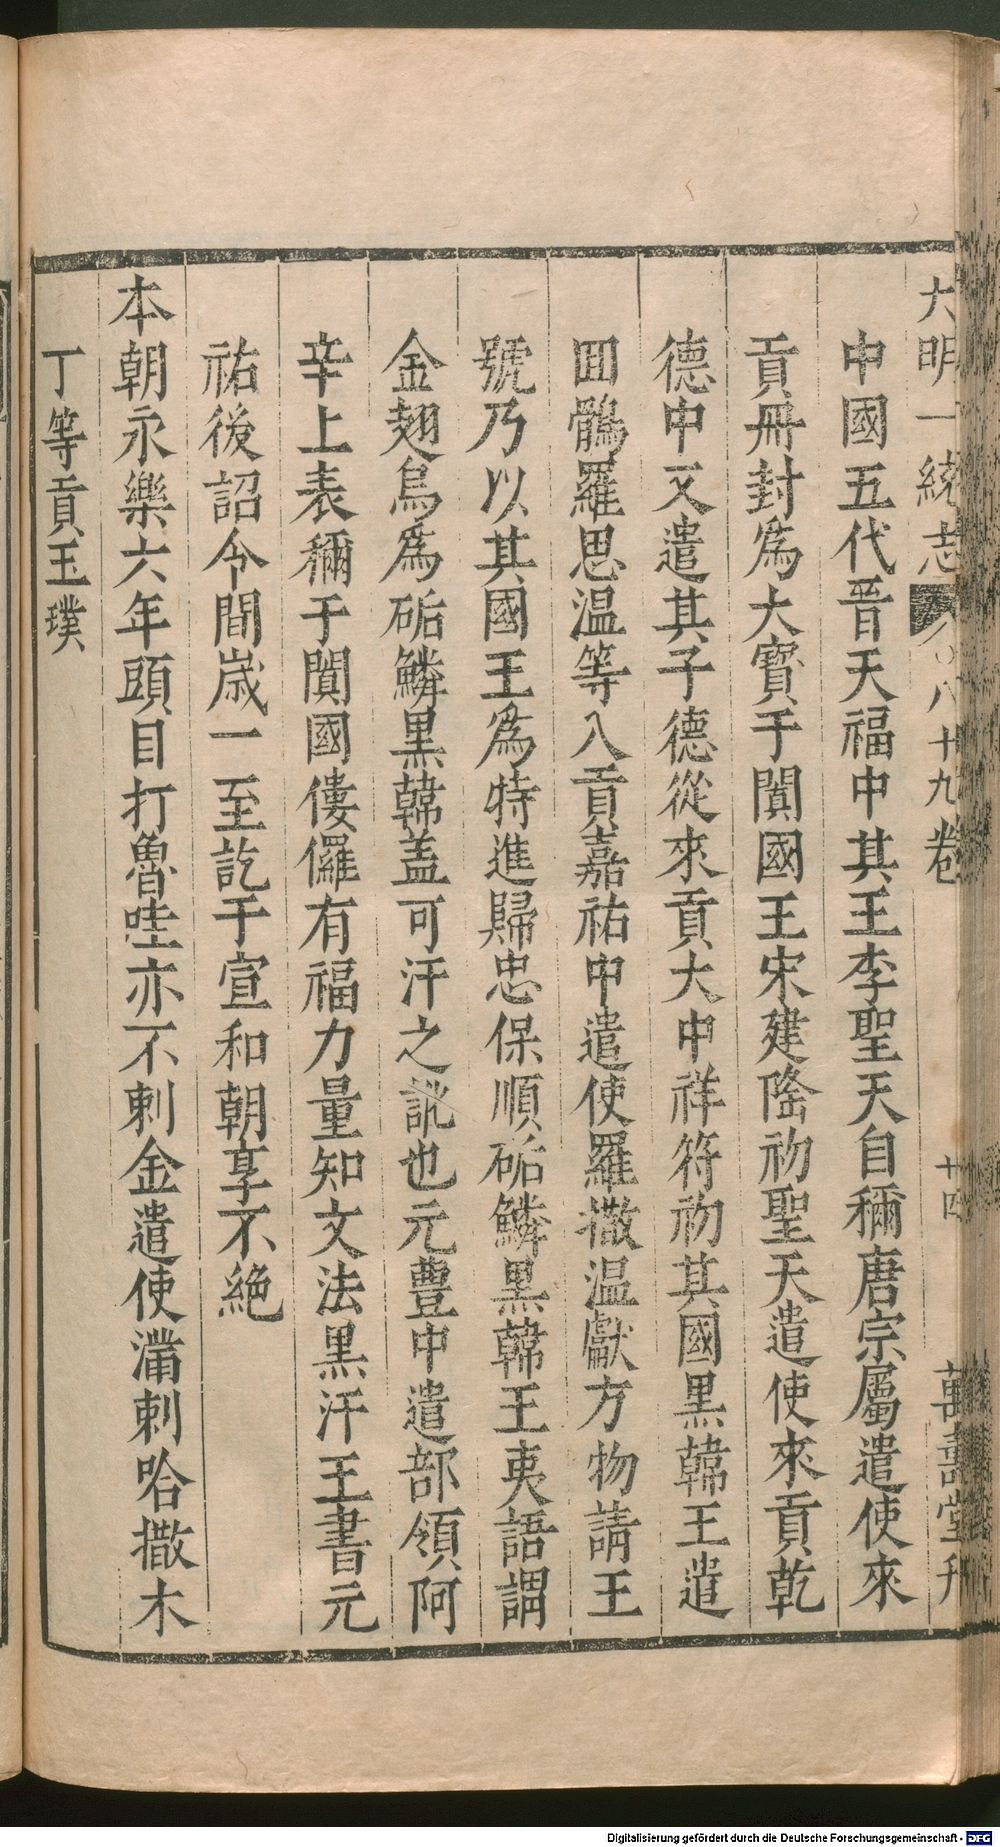 大明一統志 八十九卷 十四 萬壽堂刋
中國五代晉天福中其王李聖天自稱唐宗屬遣使來
貢冊封爲大寳于闐國王宋建隆初聖天遣使來貢乾
德中又遣其子德從來貢大中祥符初其國黒韓王遣
囬鶻羅思温等入貢嘉祐中遣使羅撒温獻方物請王
號乃以其國王爲特進歸忠保順砳鱗黒韓王夷語謂
金翅烏爲砳鱗黒韓盖可汗之訛也元豐中遣部領阿
辛上表稱于闐國僂儸有福力量知文法黒汗王書元
祐後詔令間歳一至訖于宣和朝享不絶
本朝永樂六年頭目打魯哇亦不剌金遣使滿剌哈撒木
丁等貢玉璞
Digitalisierung gefördert durch die Deutsche Forschungsgemeinschaft - DFG